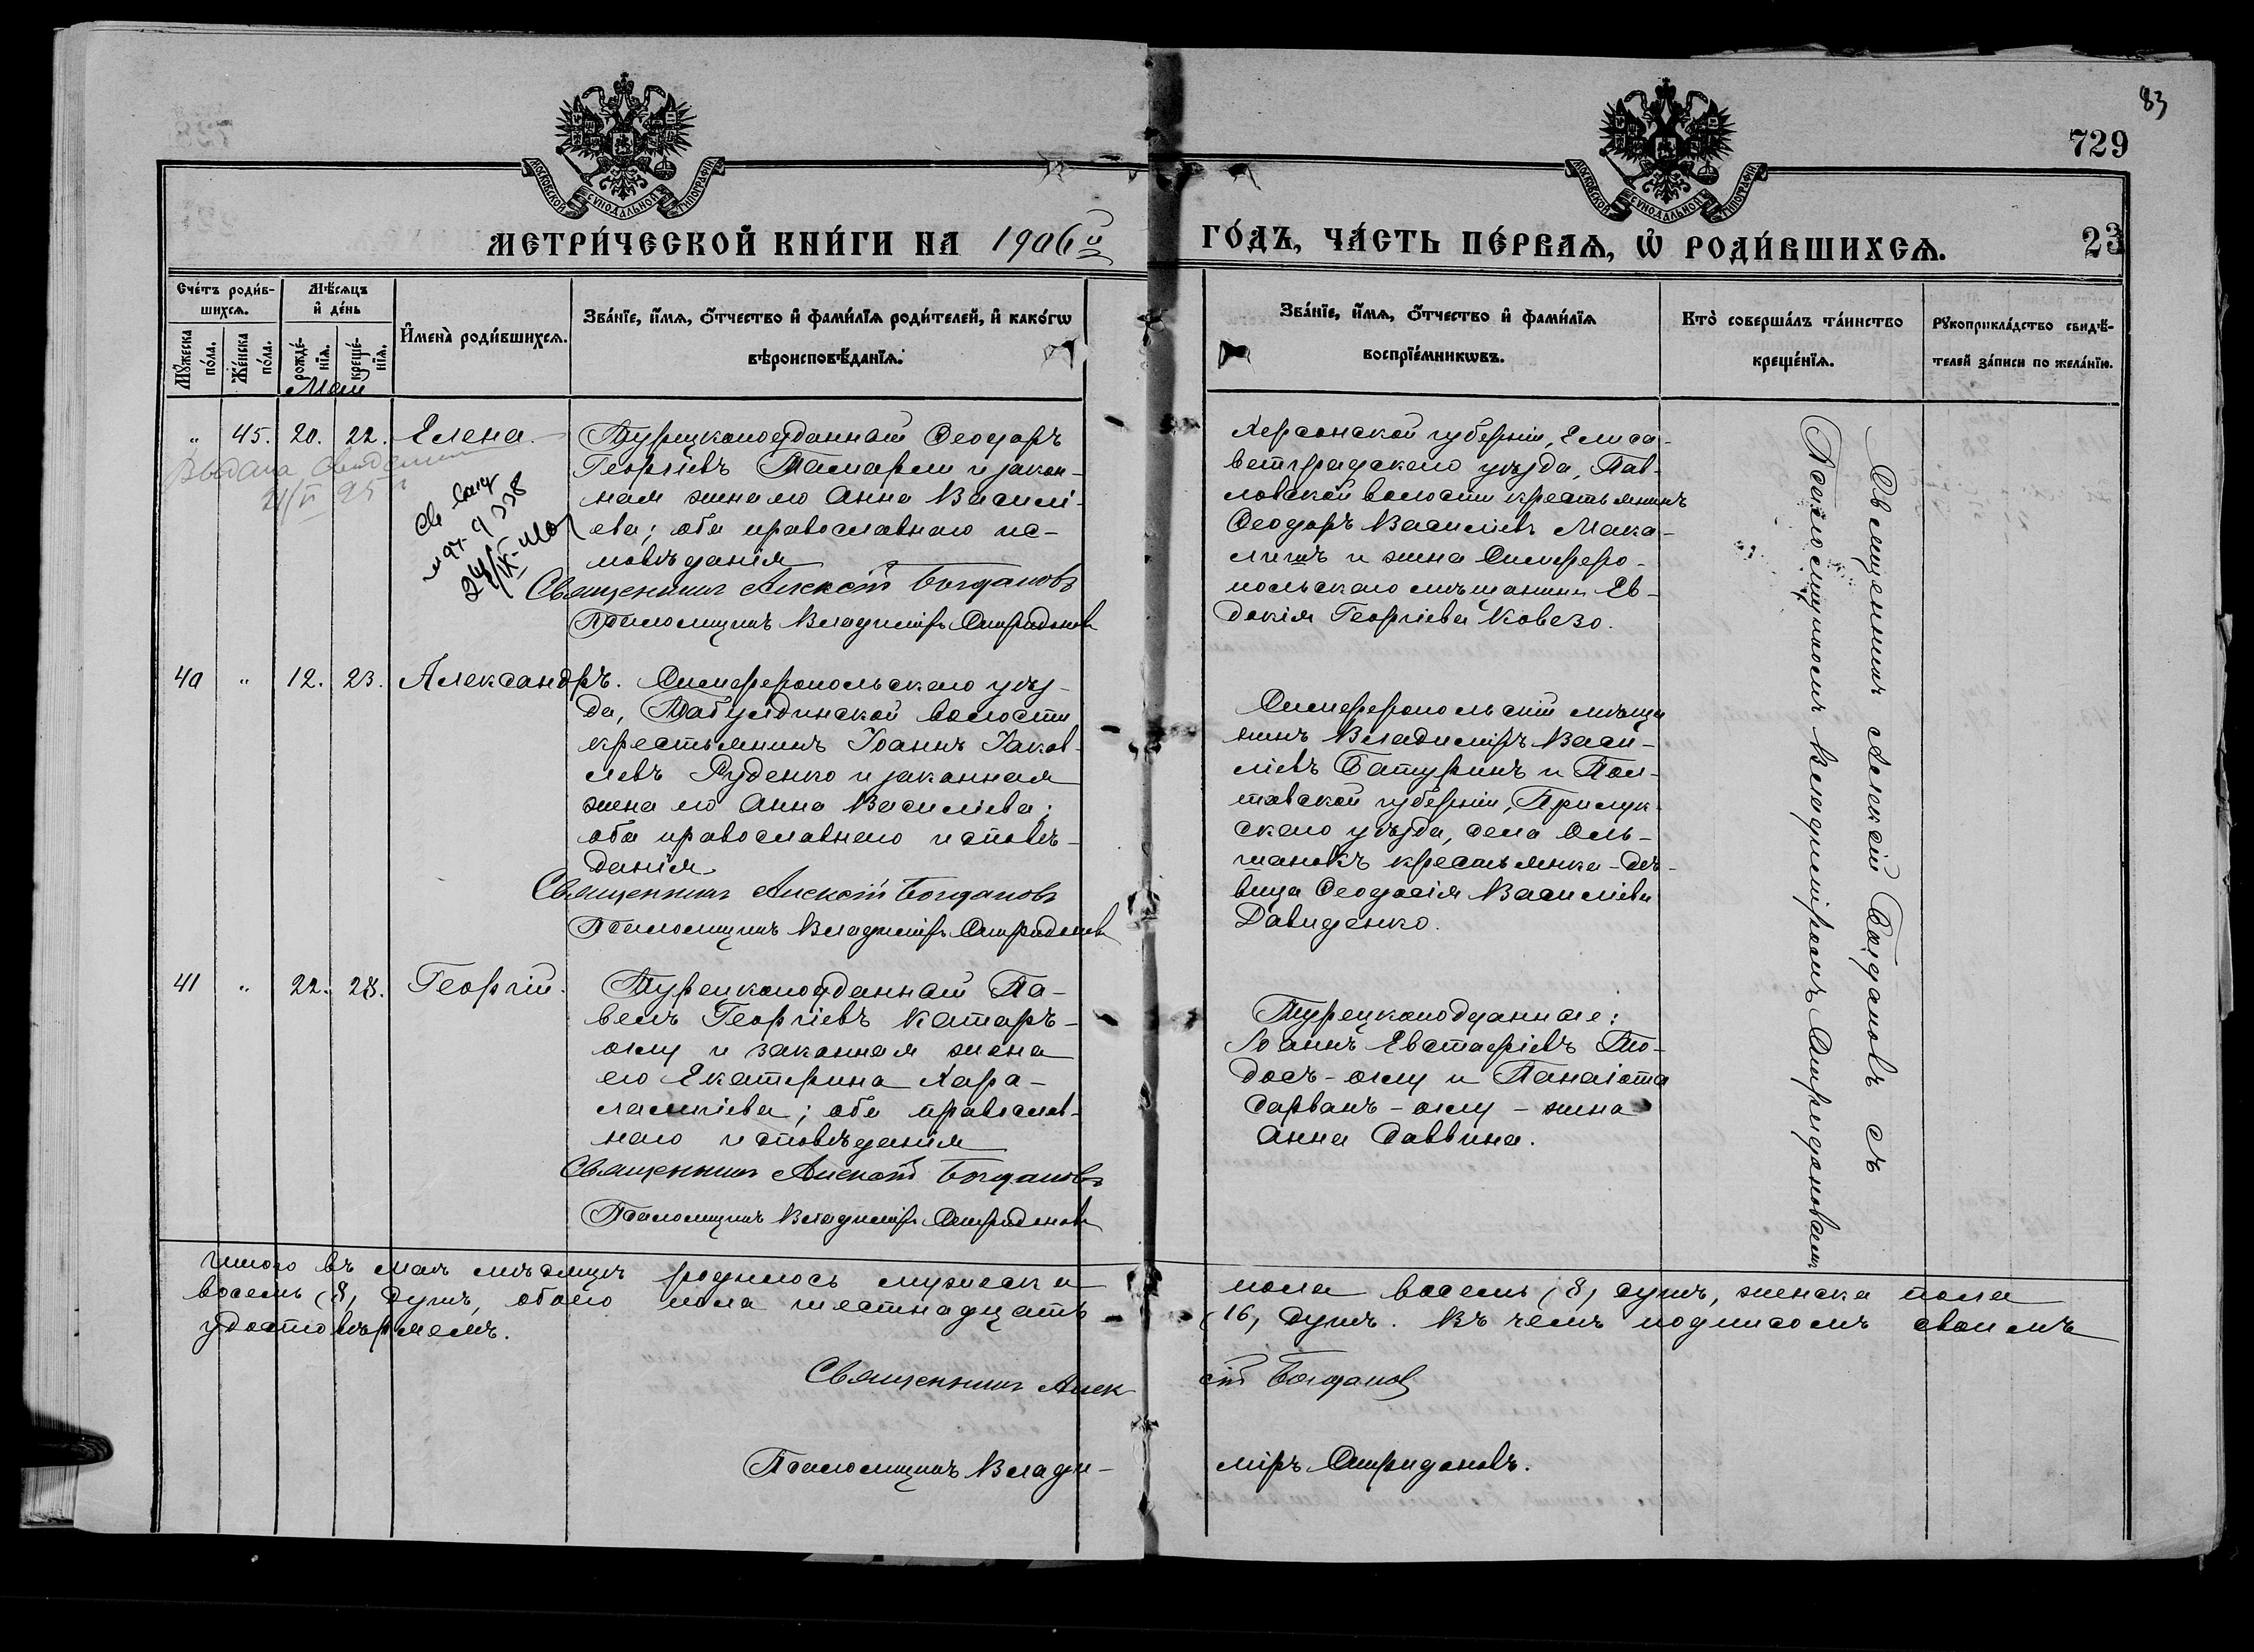 83
729
23
МОСКОВСКОЙ СУНОДАЛЬНОЙ ТИПОГРАФІИ
МОСКОВСКОЙ СУНОДАЛЬНОЙ ТИПОГРАФІИ
МЕТРИ́ЧЕСКОЙ КНИ́ГИ НА 1906й ГО́ДЪ, ЧА́СТЬ ПЕ́РВАѦ, Ѡ҆ РОДИ́ВШИХСѦ.
Сче́тъ роди́в-
шихсѧ.
Мꙋ́жеска по́ла.
Же́нска по́ла.
Мѣ́сѧцъ
и҆ де́нь
рожде́-
нїѧ.
креще́-
нїѧ.
И҆мена̀ роди́вшихсѧ.
Зва́нїе, и҆́мѧ, ѻ҆́тчество и҆ фами́лїѧ роди́телей, и҆ како́гѡ
вѣроисповѣ́данїѧ.
Зва́нїе, и҆́мѧ, ѻ҆́тчество и҆ фами́лїѧ
воспрїе́мникѡвъ.
Кто̀ соверша́лъ та́инство
креще́нїѧ.
Рꙋкоприкла́дство свидѣ́-
телей за́писи по жела́нїю.
Май
" 45. 20. 22. Елена.
Турецкоподданный Ѳеодоръ
Георгіевъ и закон-
ная жена его Анна Василі-
ева; оба православнаго ис-
повѣданія
Священникъ Алексій Богдановъ
Псаломщикъ Владиміръ Спиридоновъ
Выдана
Херсонской губерніи, Елиса-
ветградскаго уѣзда, Пав-
ловской волости крестьянинъ
Ѳеодоръ Василіевъ Мака-
и жена Симферо-
польскаго мѣщанина Ев-
докія Георгіева Ковезо.
40 " 12. 23. Александръ.
Симферопольскаго уѣз-
да, Табулдинской волости
крестьянинъ Іоаннъ Іаков-
левъ Руденко и законная
жена его Анна Василіева;
оба православнаго исповѣ-
данія
Священникъ Алексій Богдановъ
Псаломщикъ Владиміръ Спиридоновъ
Симферопольскій мѣща
нинъ Владиміръ Васи-
ліевъ Батуринъ и Пол-
тавской губерніи, Прилук-
скаго уѣзда, села Оль-
шанокъ крестьянка-дѣ-
вица Ѳеодосія Василіева
Давиденко.
41 " 22. 28. Георгій.
Турецкоподданный Па-
велъ Георгіевъ Катаръ-
оглу и законная жена
его Екатерина Хара-
лампіева; оба православ-
наго исповѣданія
Священникъ Алексій Богдановъ
Псаломщикъ Владиміръ Спиридоновъ
Турецкоподданные:
Іоаннъ Евстафіевъ То-
досъ-оглу и Панаіота
Сарванъ-оглу - жена
Анна Саввина.
Священникъ Алексій Богдановъ съ
Псаломщикомъ Владиміромъ Спиридоновымъ
Итого въ маѣ мѣсяцѣ родилось мужеска пола восемь (8) душъ, женска пола
восемь (8) душъ, обоего пола шестнадцать (16) душъ. Въ чемъ подписомъ своимъ
удостовѣряемъ.
Священникъ Алексій Богдановъ
Псаломщикъ Владиміръ Спиридоновъ.